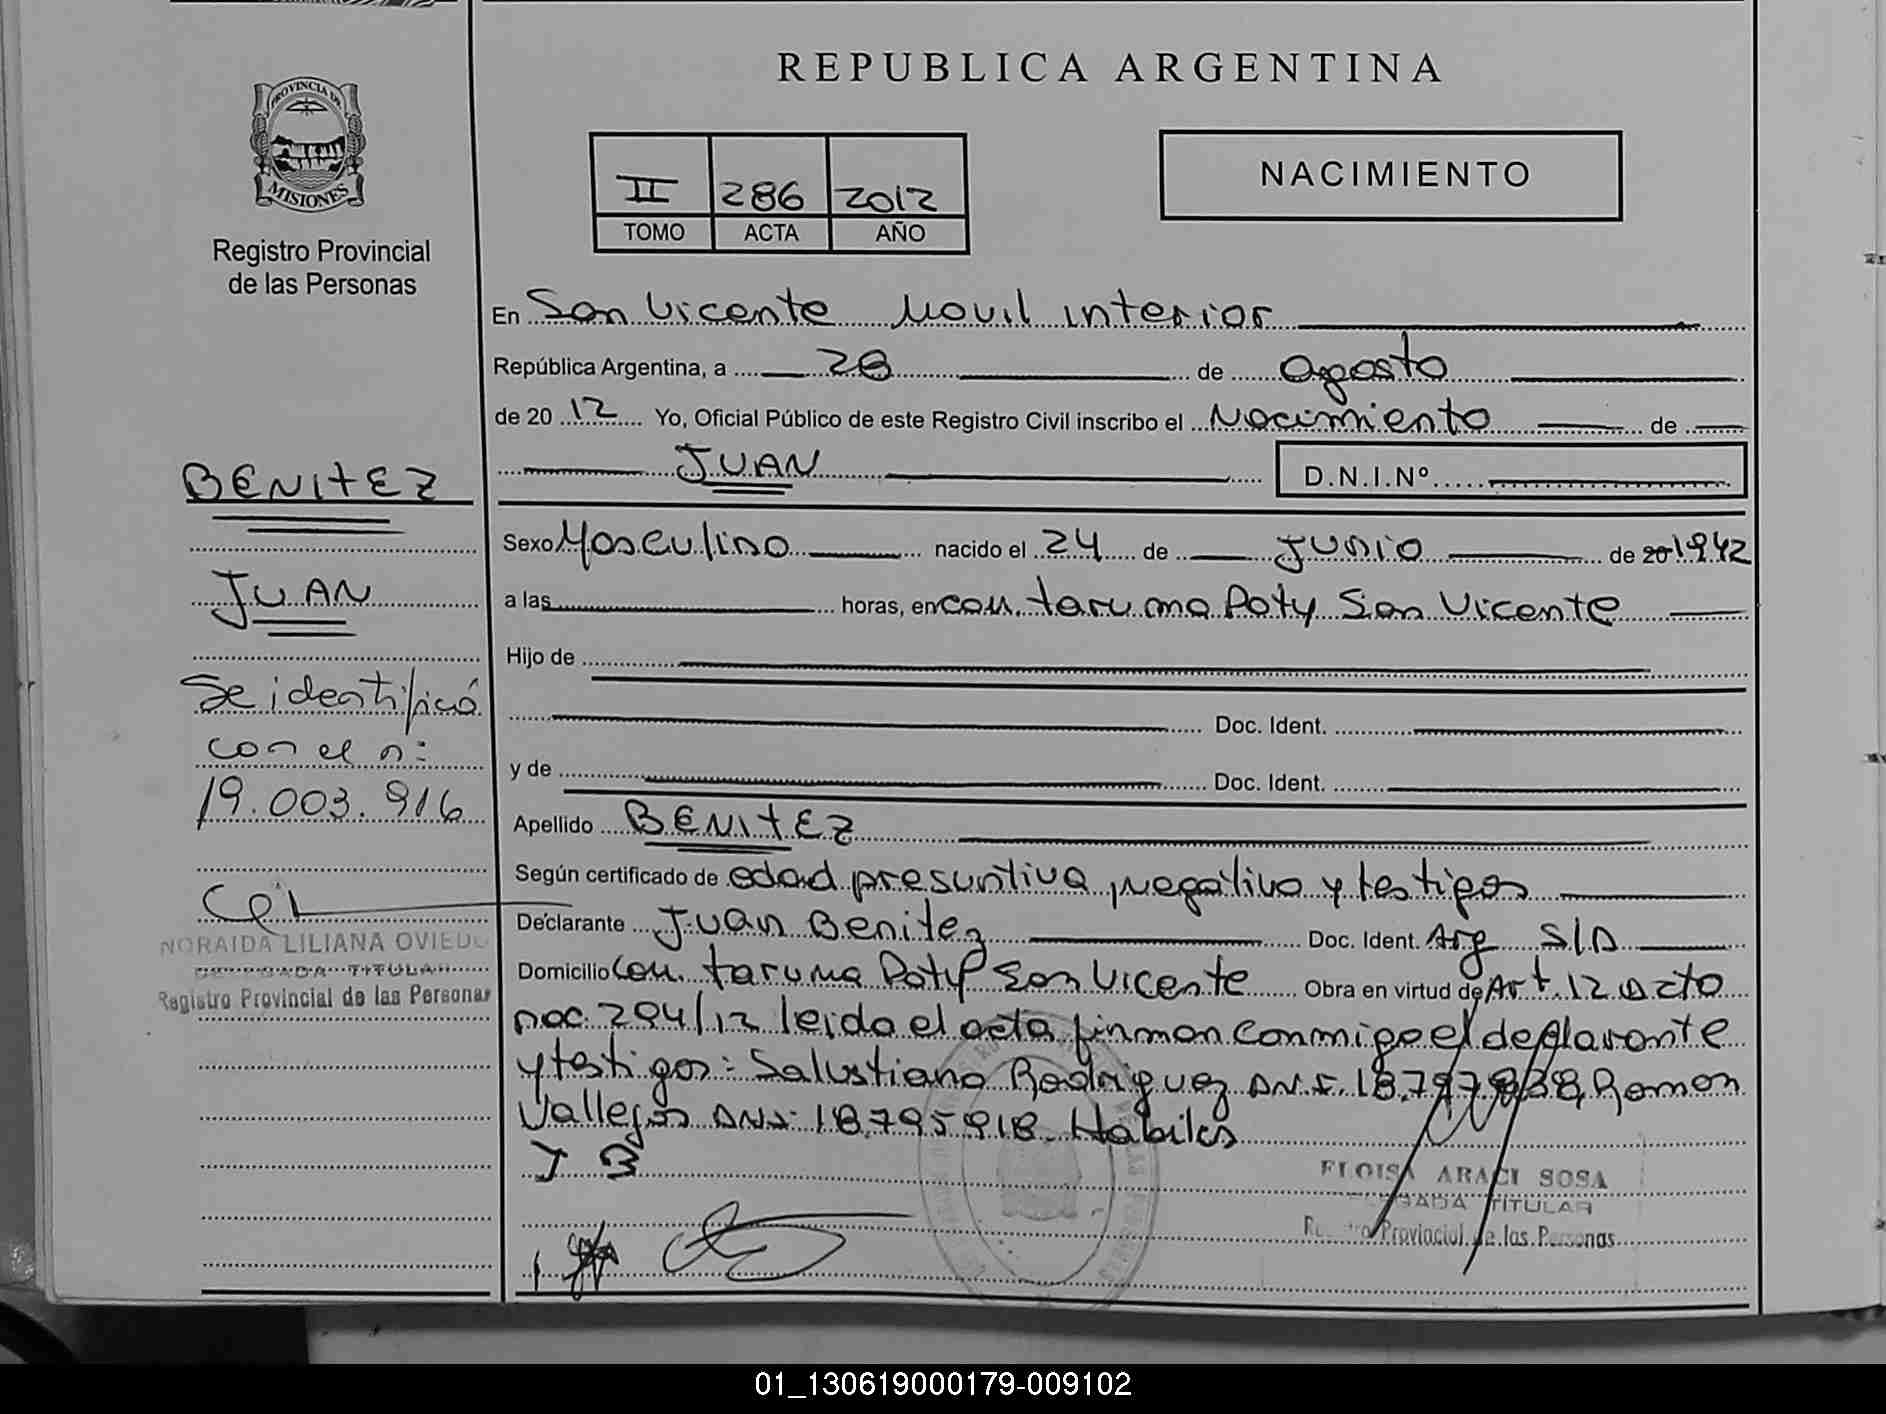 REPUBLICA ARGENTINA
PROVINCIA DE
MISIONES
Registro Provincial
de las Personas
II 286 2012
TOMO ACTA AÑO
NACIMIENTO
En San Vicente Movil interior
República Argentina, a 28 de agosto
de 2012 Yo, Oficial Público de este Registro Civil inscribo el Nacimiento de
JUAN D.N.I.Nº
BENITEZ
JUAN
Se identificó
con el n:
19.003.916
NORAIDA LILIANA OVIEDO
DELEGADA TITULAR
Registro Provincial de las Personas
Sexo Masculino nacido el 24 de Junio de 20 1942
a las horas, en Col. taruma Poty San Vicente
Hijo de
Doc. Ident.
y de Doc. Ident.
Apellido BENITEZ
Según certificado de edad presuntiva, negativo y testigos
Declarante Juan Benitez Doc. Ident. Arg S/D
Domicilio Col. taruma Poty San Vicente Obra en virtud de Art. 12 Dcto
nac. 294/12 leida el acta firman conmigo el declarante
y testigos: Salustiano Rodriguez DNI. Ramon
Vallejos DNI: 18.795918. Habiles
J B
ELOISA ARACI SOSA
DELEGADA TITULAR
Registro Provincial de las Personas
01_130619000179-009102